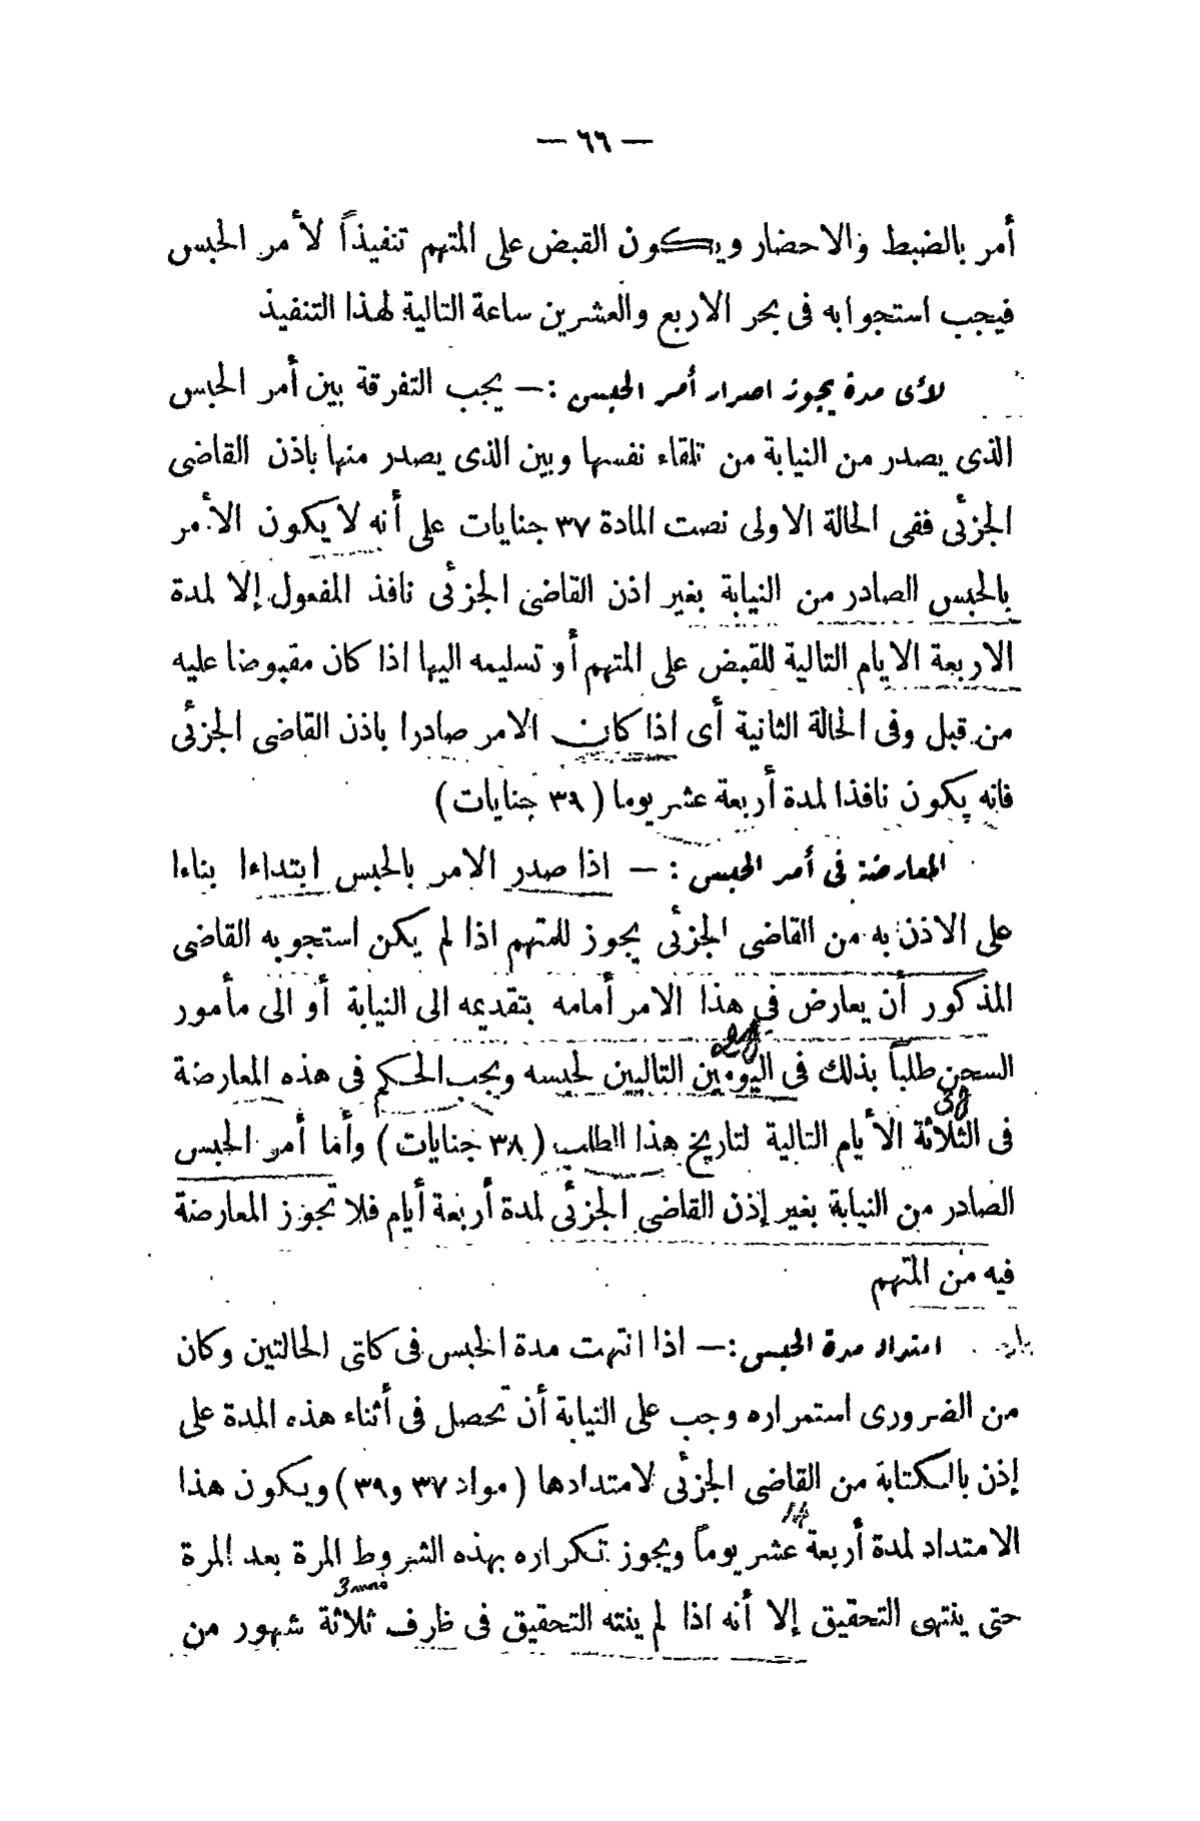 — ٦٦ —
أمر بالضبط والاحضار ويكون القبض على المتهم تنفيذاً لأمر الحبس
فيجب استجوابه فى بحر الاربع والعشرين ساعة التالية لهذا التنفيذ
لأى مدة يجوز اصدار أمر الحبس :— يجب التفرقة بين أمر الحبس
الذى يصدر من النيابة من تلقاء نفسها وبين الذى يصدر منها باذن القاضى
الجزئى ففى الحالة الاولى نصت المادة ٣٧ جنايات على أنه لا يكون الأمر
بالحبس الصادر من النيابة بغير اذن القاضى الجزئى نافذ المفعول إلا لمدة
الاربعة الايام التالية للقبض على المتهم أو تسليمه اليها اذا كان مقبوضا عليه
من قبل وفى الحالة الثانية أى اذا كان الامر صادرا باذن القاضى الجزئى
فانه يكون نافذا لمدة أربعة عشر يوما ( ٣٩ جنايات )
المعارضة فى أمر الحبس : — اذا صدر الامر بالحبس ابتداءا بناءا
على الاذن به من القاضى الجزئى يجوز للمتهم اذا لم يكن استجوبه القاضى
المذكور أن يعارض فى هذا الامر أمامه بتقديمه الى النيابة أو الى مأمور
2j
السجن طلباً بذلك فى اليومين التاليين لحبسه ويجب الحكم فى هذه المعارضة
3j
فى الثلاثة الأيام التالية لتاريخ هذا الطلب ( ٣٨ جنايات ) وأما أمر الحبس
الصادر من النيابة بغير إذن القاضى الجزئى لمدة أربعة أيام فلا تجوز المعارضة
فيه من المتهم
امتداد مدة الحبس :— اذا انتهت مدة الحبس فى كلتى الحالتين وكان
من الضرورى استمراره وجب على النيابة أن تحصل فى أثناء هذه المدة على
إذن بالكتابة من القاضى الجزئى لامتدادها ( مواد ٣٧ و٣٩ ) ويكون هذا
14
الامتداد لمدة أربعة عشر يوماً ويجوز تكراره بهذه الشروط المرة بعد المرة
حتى ينتهى التحقيق إلا أنه اذا لم ينته التحقيق فى ظرف ثلاثة شهور من